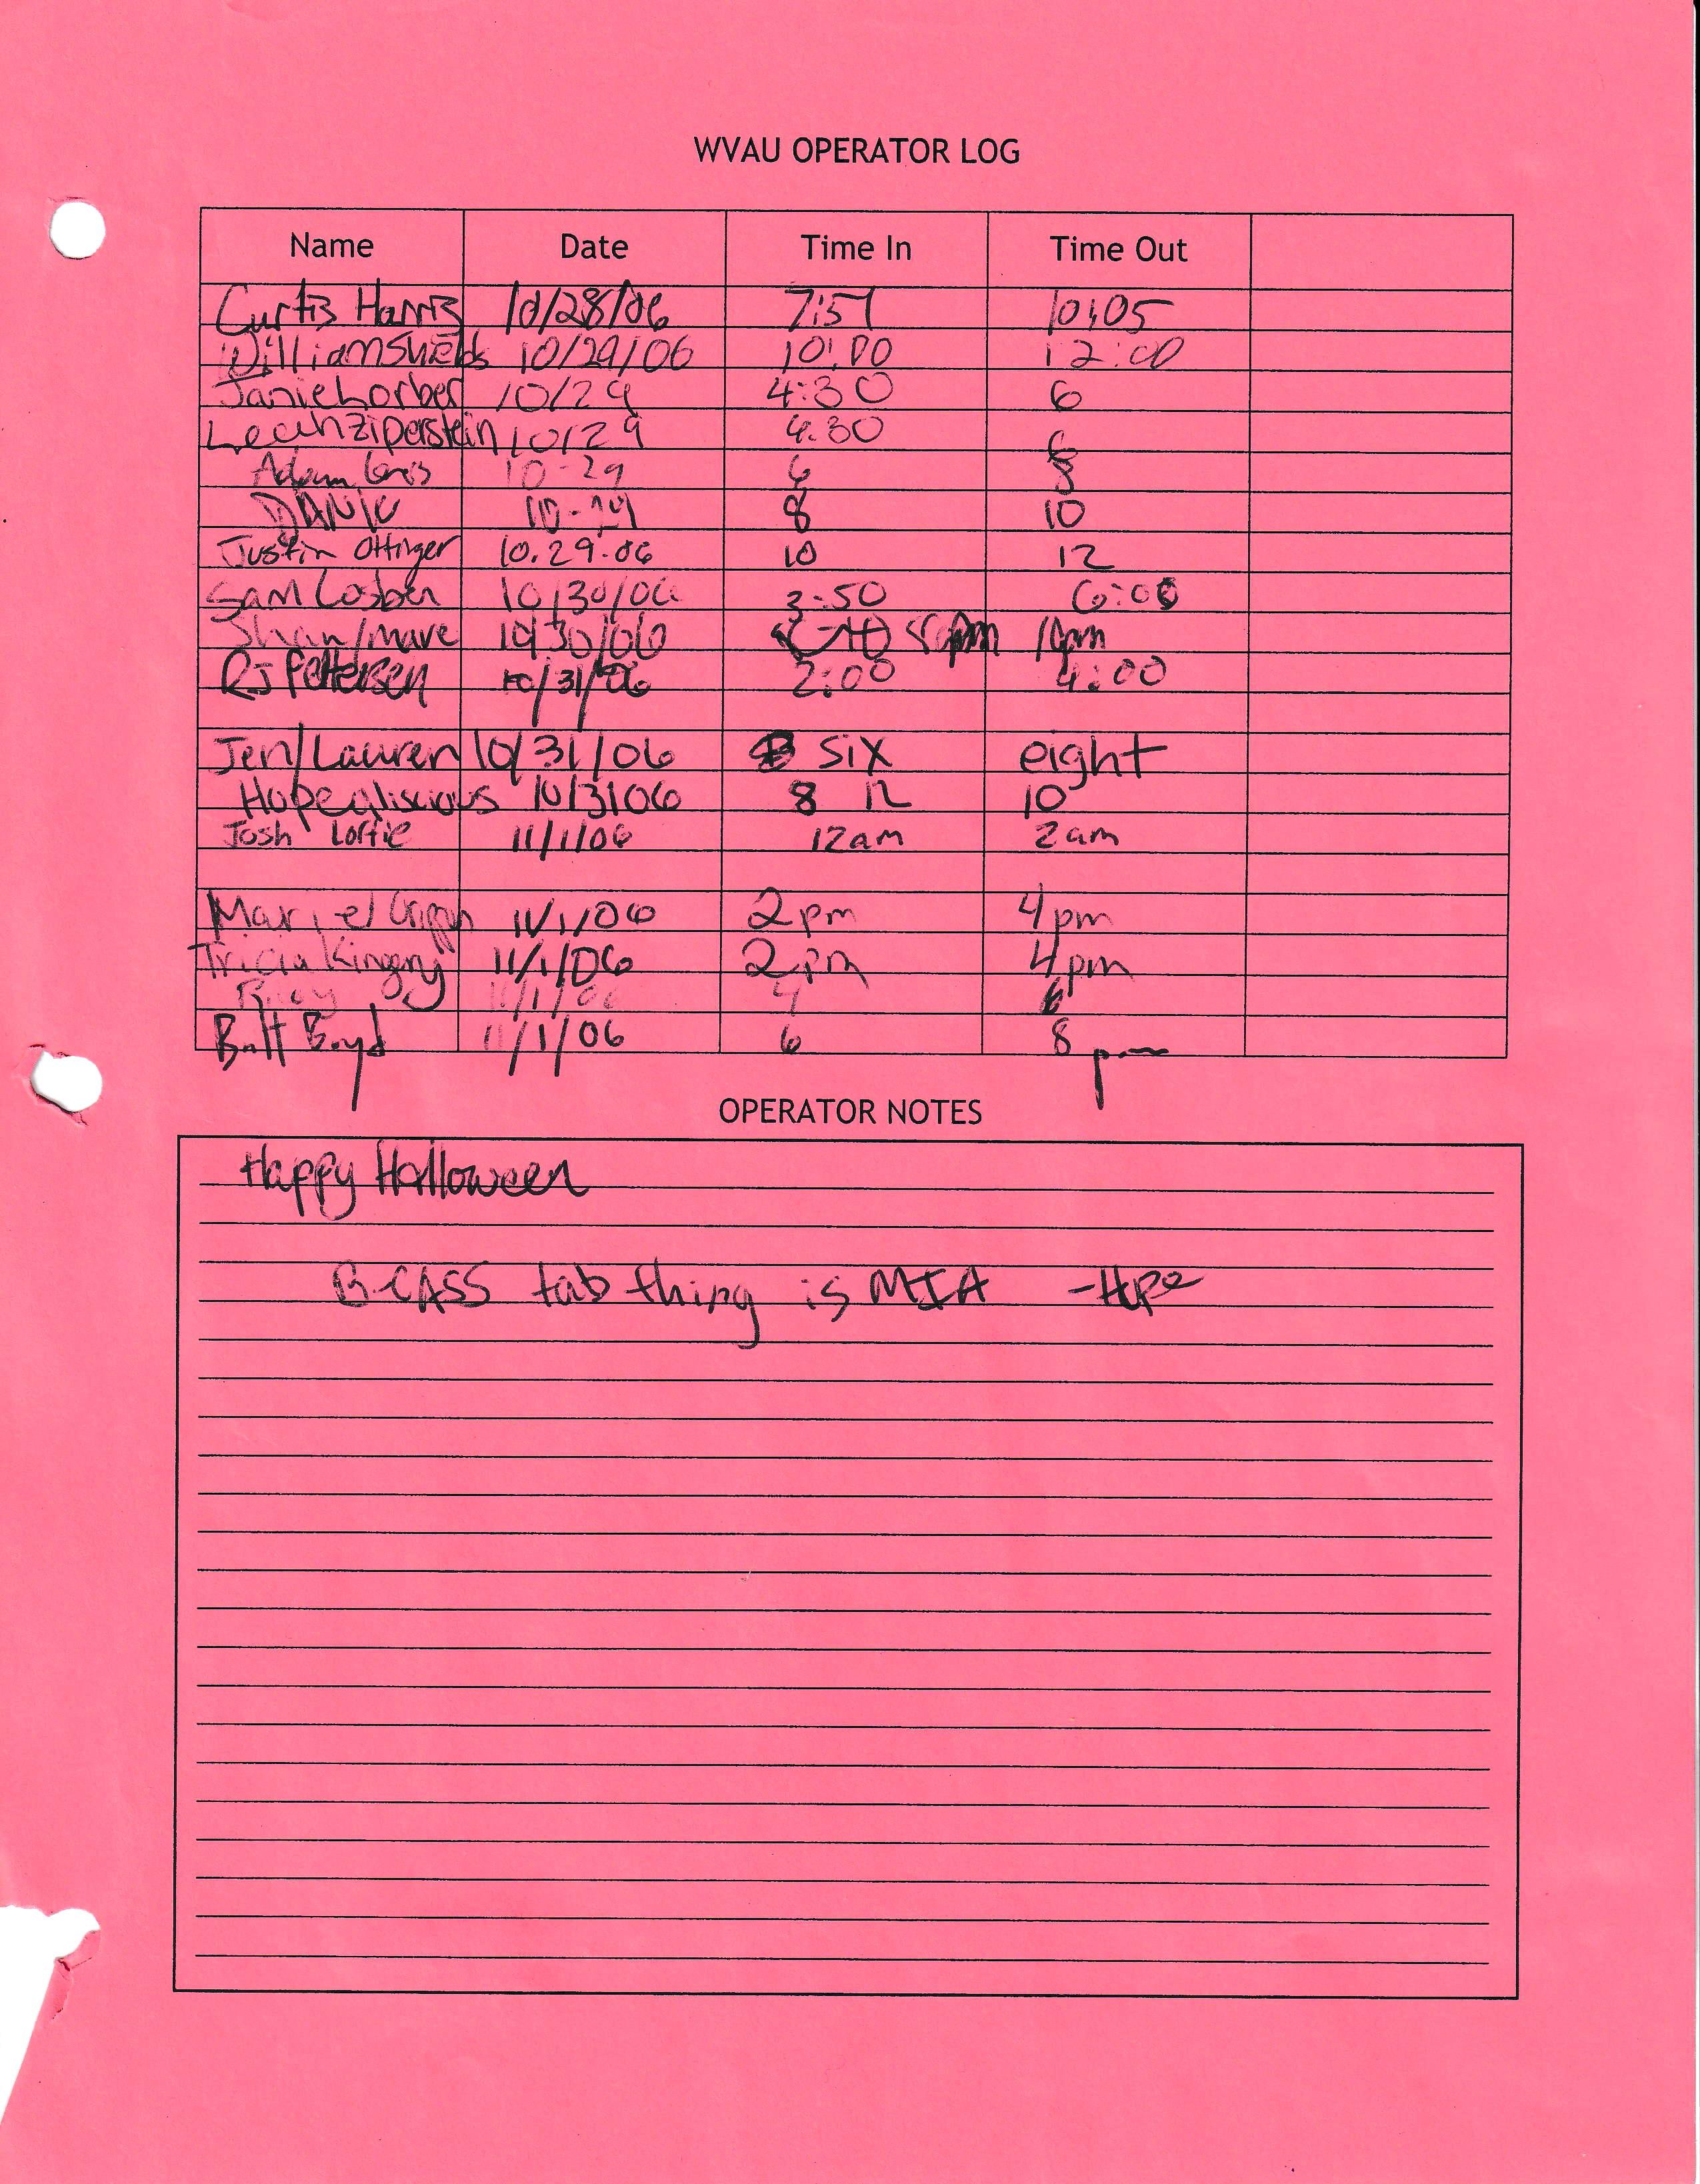 WVAU OPERATOR LOG
Name Date Time In Time Out
Curtis Harris 10/28/06 7:57 10:05
William Shields 10/29/06 10:00 12:00
Janie Lorber 10/29 4:30 6
Leah Ziperstein 10/29 4:30 6
Adam 10-29 6 8
10-29 8 10
Justin Ottinger 10.29.06 10 12
Sam Losben 10/30/06 3:50 6:06
10/30/06 10pm
RJ Pettersen 10/31/06 2:00 4:00
Jen/Lauren 10/31/06 six eight
Hopealiscious 10/3106 8 12 10
Josh Loftie 11/1/06 12am 2am
Mariel 11/1/06 2pm 4pm
Tricia Kingery 11/1/06 2pm 4pm
11/1/06 4 6
Boyd 11/1/06 6 8 pm
OPERATOR NOTES
Happy Halloween
B-CASS tab thing is MIA -Hope